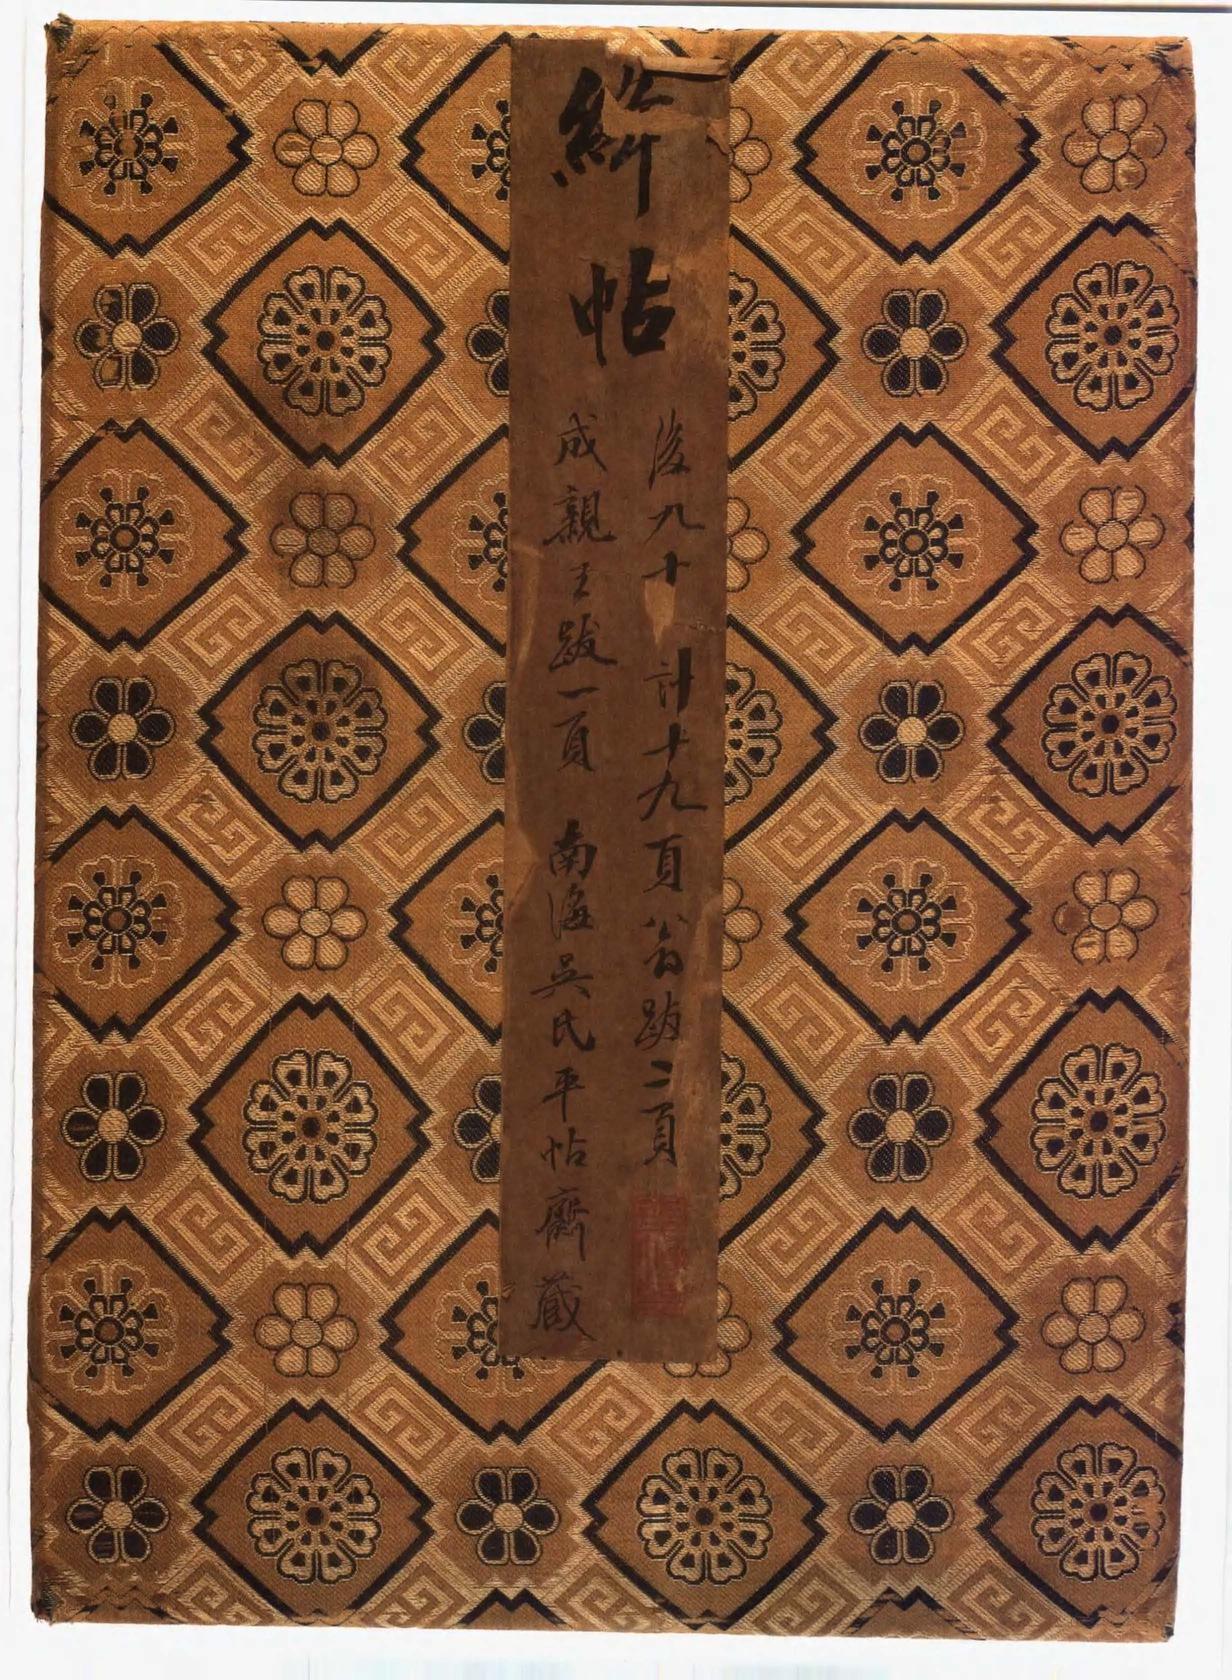 絳帖
後九十 計十九頁 翁跋二頁
成親王跋一頁 南海吳氏平帖齋藏